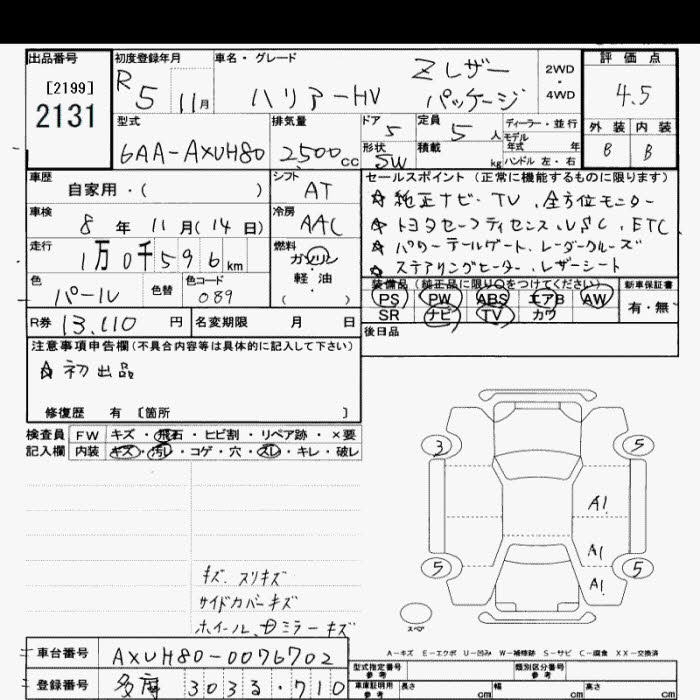 出品番号
[2199]
2131
初度登録年月
R 5 11月
車名・グレード
ハリアーHV
Zレザー
パッケージ
2WD
・
4WD
評価点
4.5
外装 内装
B B
型式
6AA-AXUH80
排気量
2,500cc
ドア
5
定員
5人
形状
SW
積載
kg
ディーラー・並行
モデル
年式 年
ハンドル 左・右
車歴
自家用・( )
シフト
AT
車検
8年 11月(14日)
冷房
AAC
走行
1万0千596km
燃料
ガソリン
・
軽油
( )
色
パール
色替
色コード
089
R券 13,110円
名変期限 月 日
セールスポイント(正常に機能するものに限ります)
☆ 純正ナビ・TV、全方位モニター
☆ トヨタセーフティセンス、VSC、ETC
☆ パワーテールゲート、レーダークルーズ
☆ ステアリングヒーター、レザーシート
装備品(純正品に限り○をつけてください)
PS PW ABS エアB AW
SR ナビ TV カワ
新車保証書
有・無
後日品
注意事項申告欄(不具合内容等は具体的に記入して下さい)
☆ 初出品
修復歴 有 〔箇所 〕
検査員
記入欄
FW キズ・飛石・ヒビ割・リペア跡・×要
内装 キズ・汚レ・コゲ・穴・スレ・キレ・破レ
3 5
A1
A1
5 A1 5
スペア
キズ、スリキズ
サイドカバーキズ
ホイール、ドミラーキズ
A-キズ E-エクボ U-凹み W-補修跡 S-サビ C-腐食 XX-交換済
車台番号 AXUH80-0076702
登録番号 多摩 303る・710
型式指定番号
参考
類別区分番号
参考
車庫証明用
参考
長さ cm 幅 cm 高さ cm